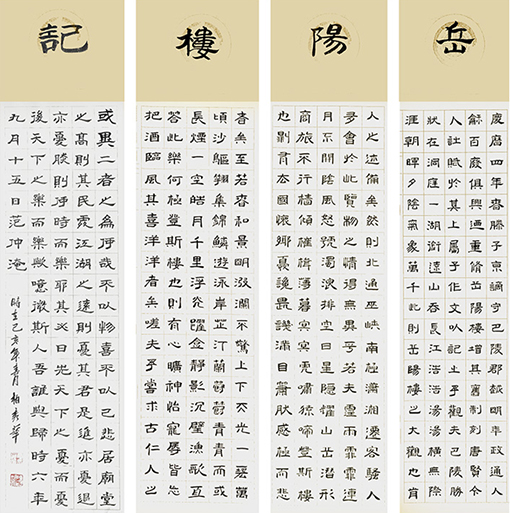 岳陽樓記
慶曆四年春滕子京謫守巴陵郡越明年政通人
龢百廢俱興迺重脩岳陽樓增其舊制刻唐賢今
人詩賦於其上屬予作文以記之予觀夫巴陵勝
狀在洞庭一湖銜遠山吞長江浩浩湯湯橫無際
涯朝暉夕陰氣象萬千此則岳陽樓之大觀也前
人之述備矣然則北通巫峽南極瀟湘遷客騷人
多會於此覽物之情得無異乎若夫霪雨霏霏連
月不開陰風怒號濁浪排空日星隱曜山岳潛形
商旅不行檣傾楫摧薄暮冥冥虎嘯猿啼登斯樓
也則有去國懷鄉憂讒畏譏滿目蕭然感極而悲
者矣至若春和景明波瀾不驚上下天光一碧萬
頃沙鷗翔集錦鱗游泳岸芷汀蘭郁郁青青而或
長煙一空皓月千里浮光躍金靜影沉璧漁歌互
答此樂何極登斯樓也則有心曠神怡寵辱皆忘
把酒臨風其喜洋洋者矣嗟夫予嘗求古仁人之
或異二者之為何哉不以物喜不以己悲居廟堂
之高則其民處江湖之遠則憂其君是進亦憂退
亦憂然則何時而樂耶其必曰先天下之憂而憂
後天下之樂而樂歟噫微斯人吾誰與歸時六年
九月十五日范仲淹
己亥年